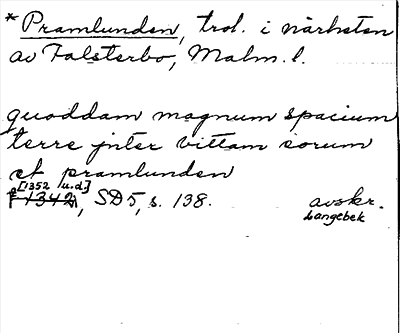 *Pramlunden, trol. i närheten
av Falsterbo, Malm. l.
quoddam magnum spacium
terre jnter vittam sorum
et pramlunden
[1352 u.d]
1342, SD 5, s. 138. avskr.
Langebek